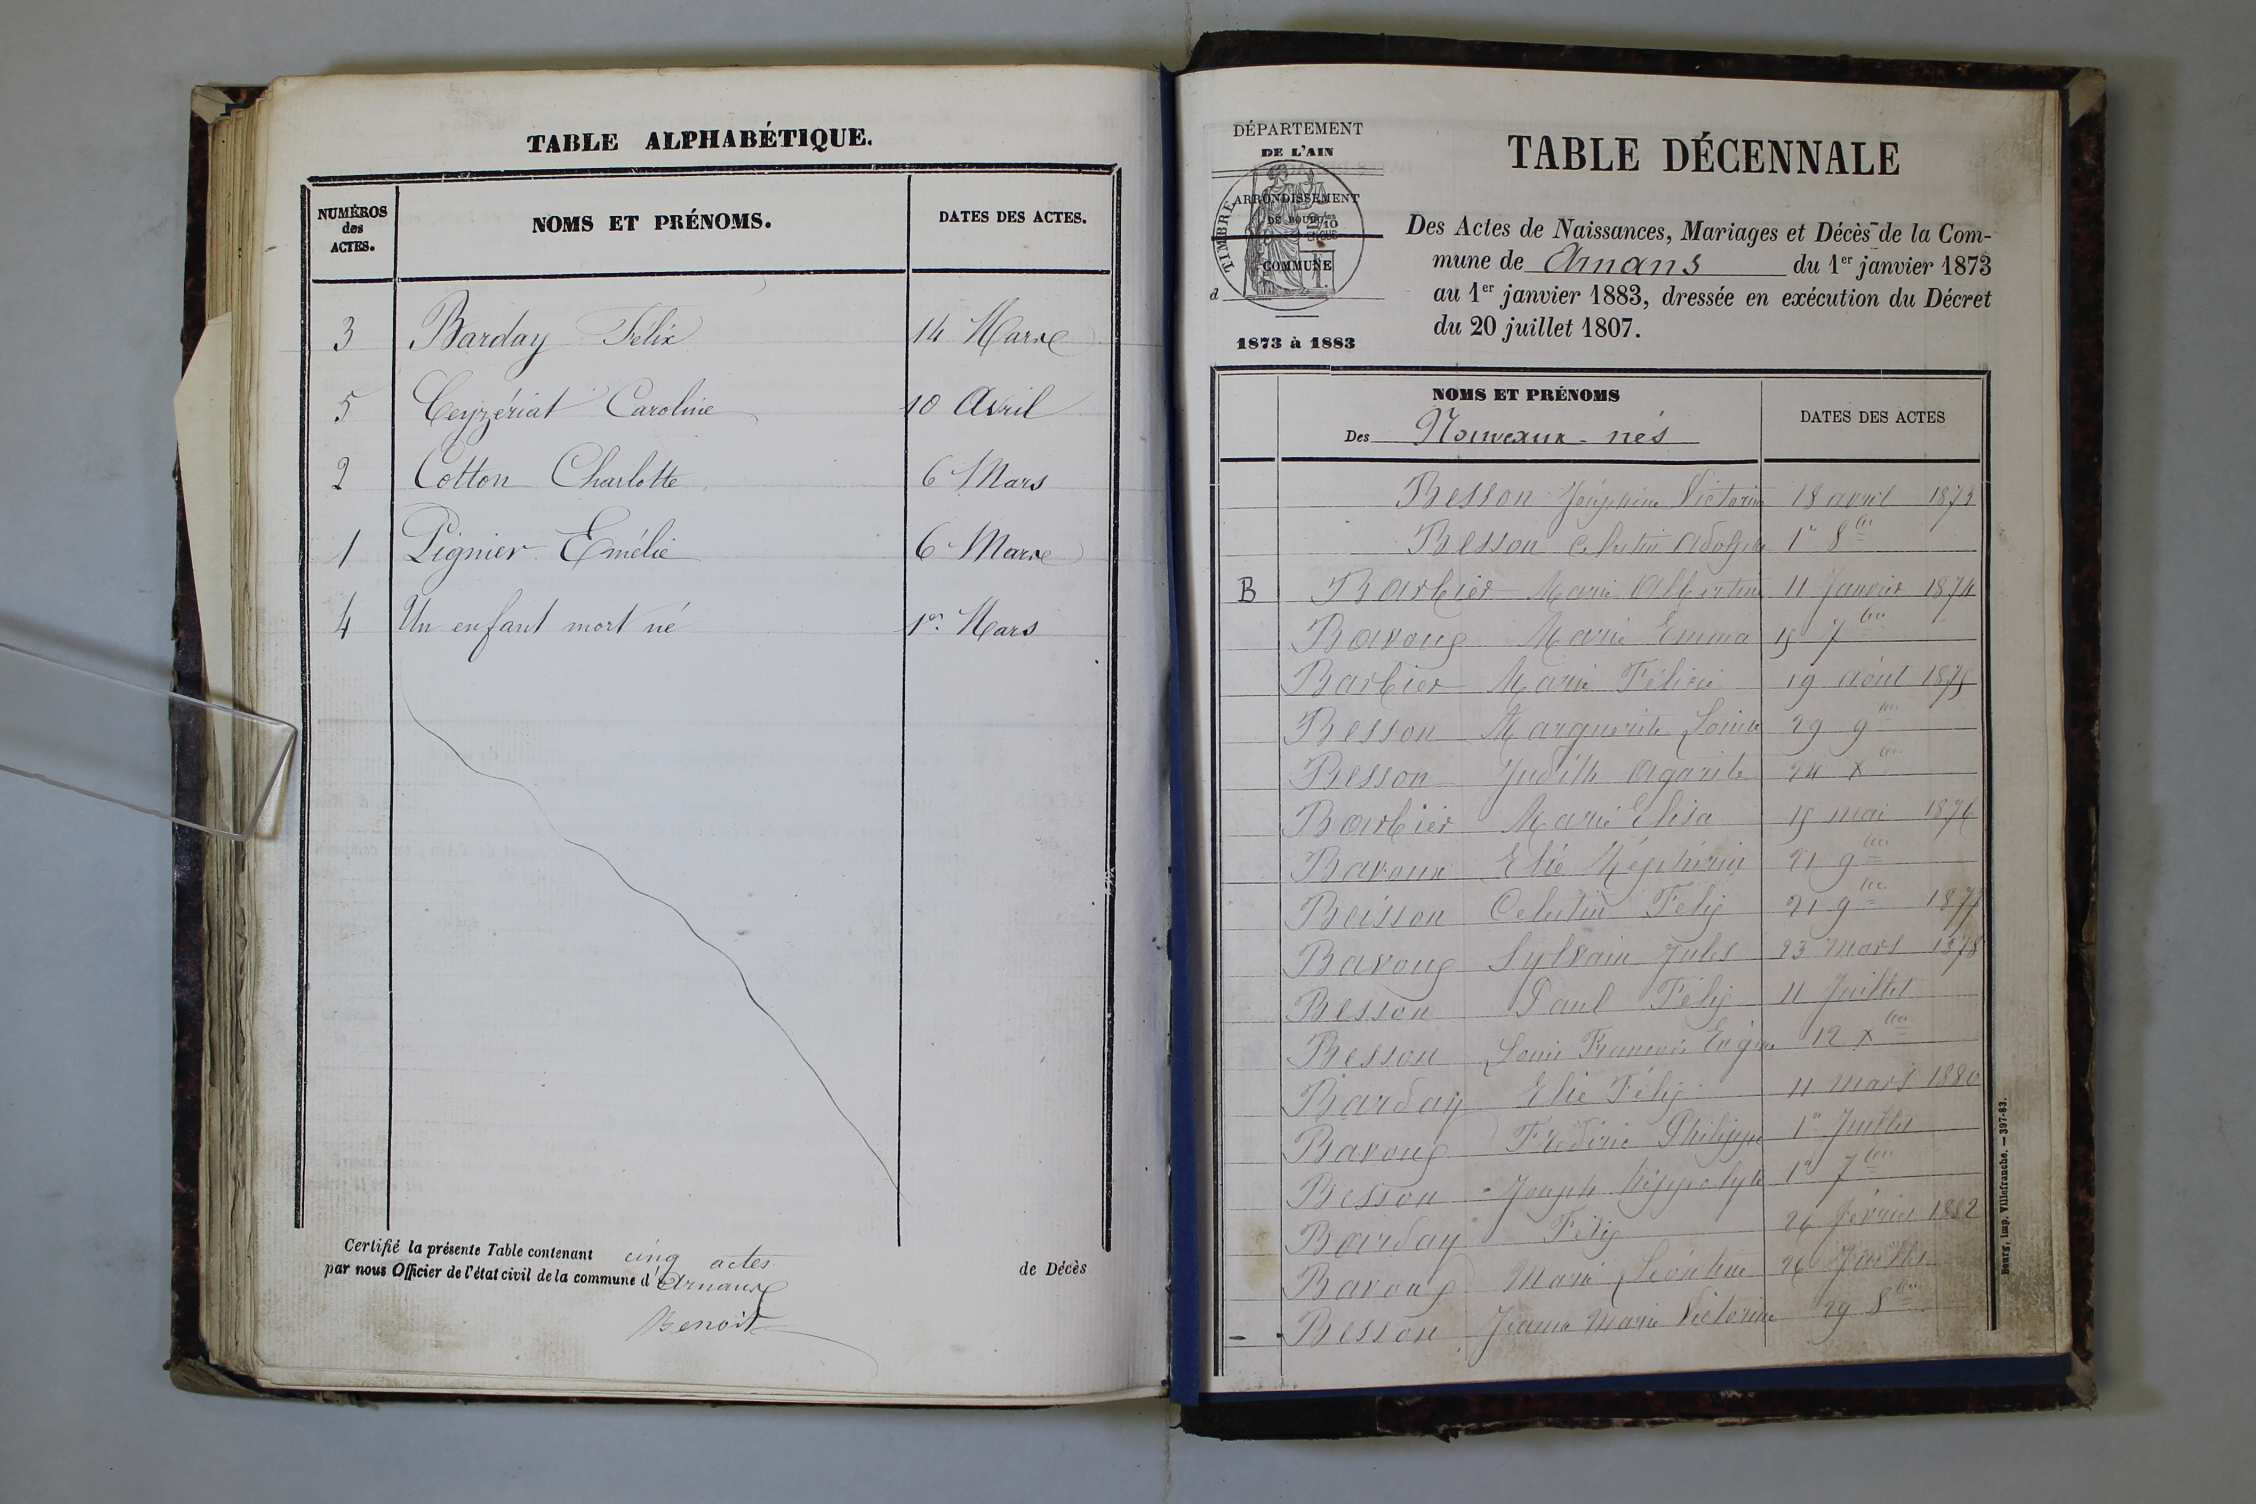 TABLE ALPHABÉTIQUE.
NUMÉROS
des
ACTES.
NOMS ET PRÉNOMS.
DATES DES ACTES.
3 Barday Félix 14 Mars
5 Ceyzériat Caroline 10 Avril
2 Cotton Charlotte 6 Mars
1 Pignier Emélie 6 Mars
4 Un enfant mort né 1er Mars
Certifié la présente Table contenant cinq actes de Décès
par nous Officier de l'état civil de la commune d'Arnans
Benoit
DÉPARTEMENT
DE L'AIN
ARRONDISSEMENT
DE BOURG
TIMBRE
COMMUNE
d
1873 à 1883
TABLE DÉCENNALE
Des Actes de Naissances, Mariages et Décès de la Com-
mune de Arnans du 1er janvier 1873
au 1er janvier 1883, dressée en exécution du Décret
du 20 juillet 1807.
NOMS ET PRÉNOMS
Des Nouveaux-nés
DATES DES ACTES
Besson Joséphine Victorine 18 avril 1873
Besson Celestin Adolphe 1er 8bre
B Barbier Marie Albertine 11 Janvier 1874
Bavoux Marie Emma 15 7bre
Barbier Marie Félicie 19 août 1875
Besson Marguerite Louise 29 9bre
Besson Judith Agarite 24 xbre
Barbier Marie Elisa 15 mai 1876
Bavoux Elie Zéphirin 21 9bre
Beisson Celestin Félix 21 9bre 1877
Bavoux Sylvain Jules 23 mars 1878
Besson Paul Félix 11 Juillet
Besson Louis François Eugène 12 xbre
Barday Elie Félix 11 mars 1880
Bavoux Frédéric Philippe 1er Juillet
Besson Joseph hippolyte 1er 7bre
Barday Félix 26 février 1882
Bavoux Marie Léontine 26 Juillet
Besson Jeanne Marie Victorine 29 8bre
Bourg, imp. Villefranche. — 397-83.